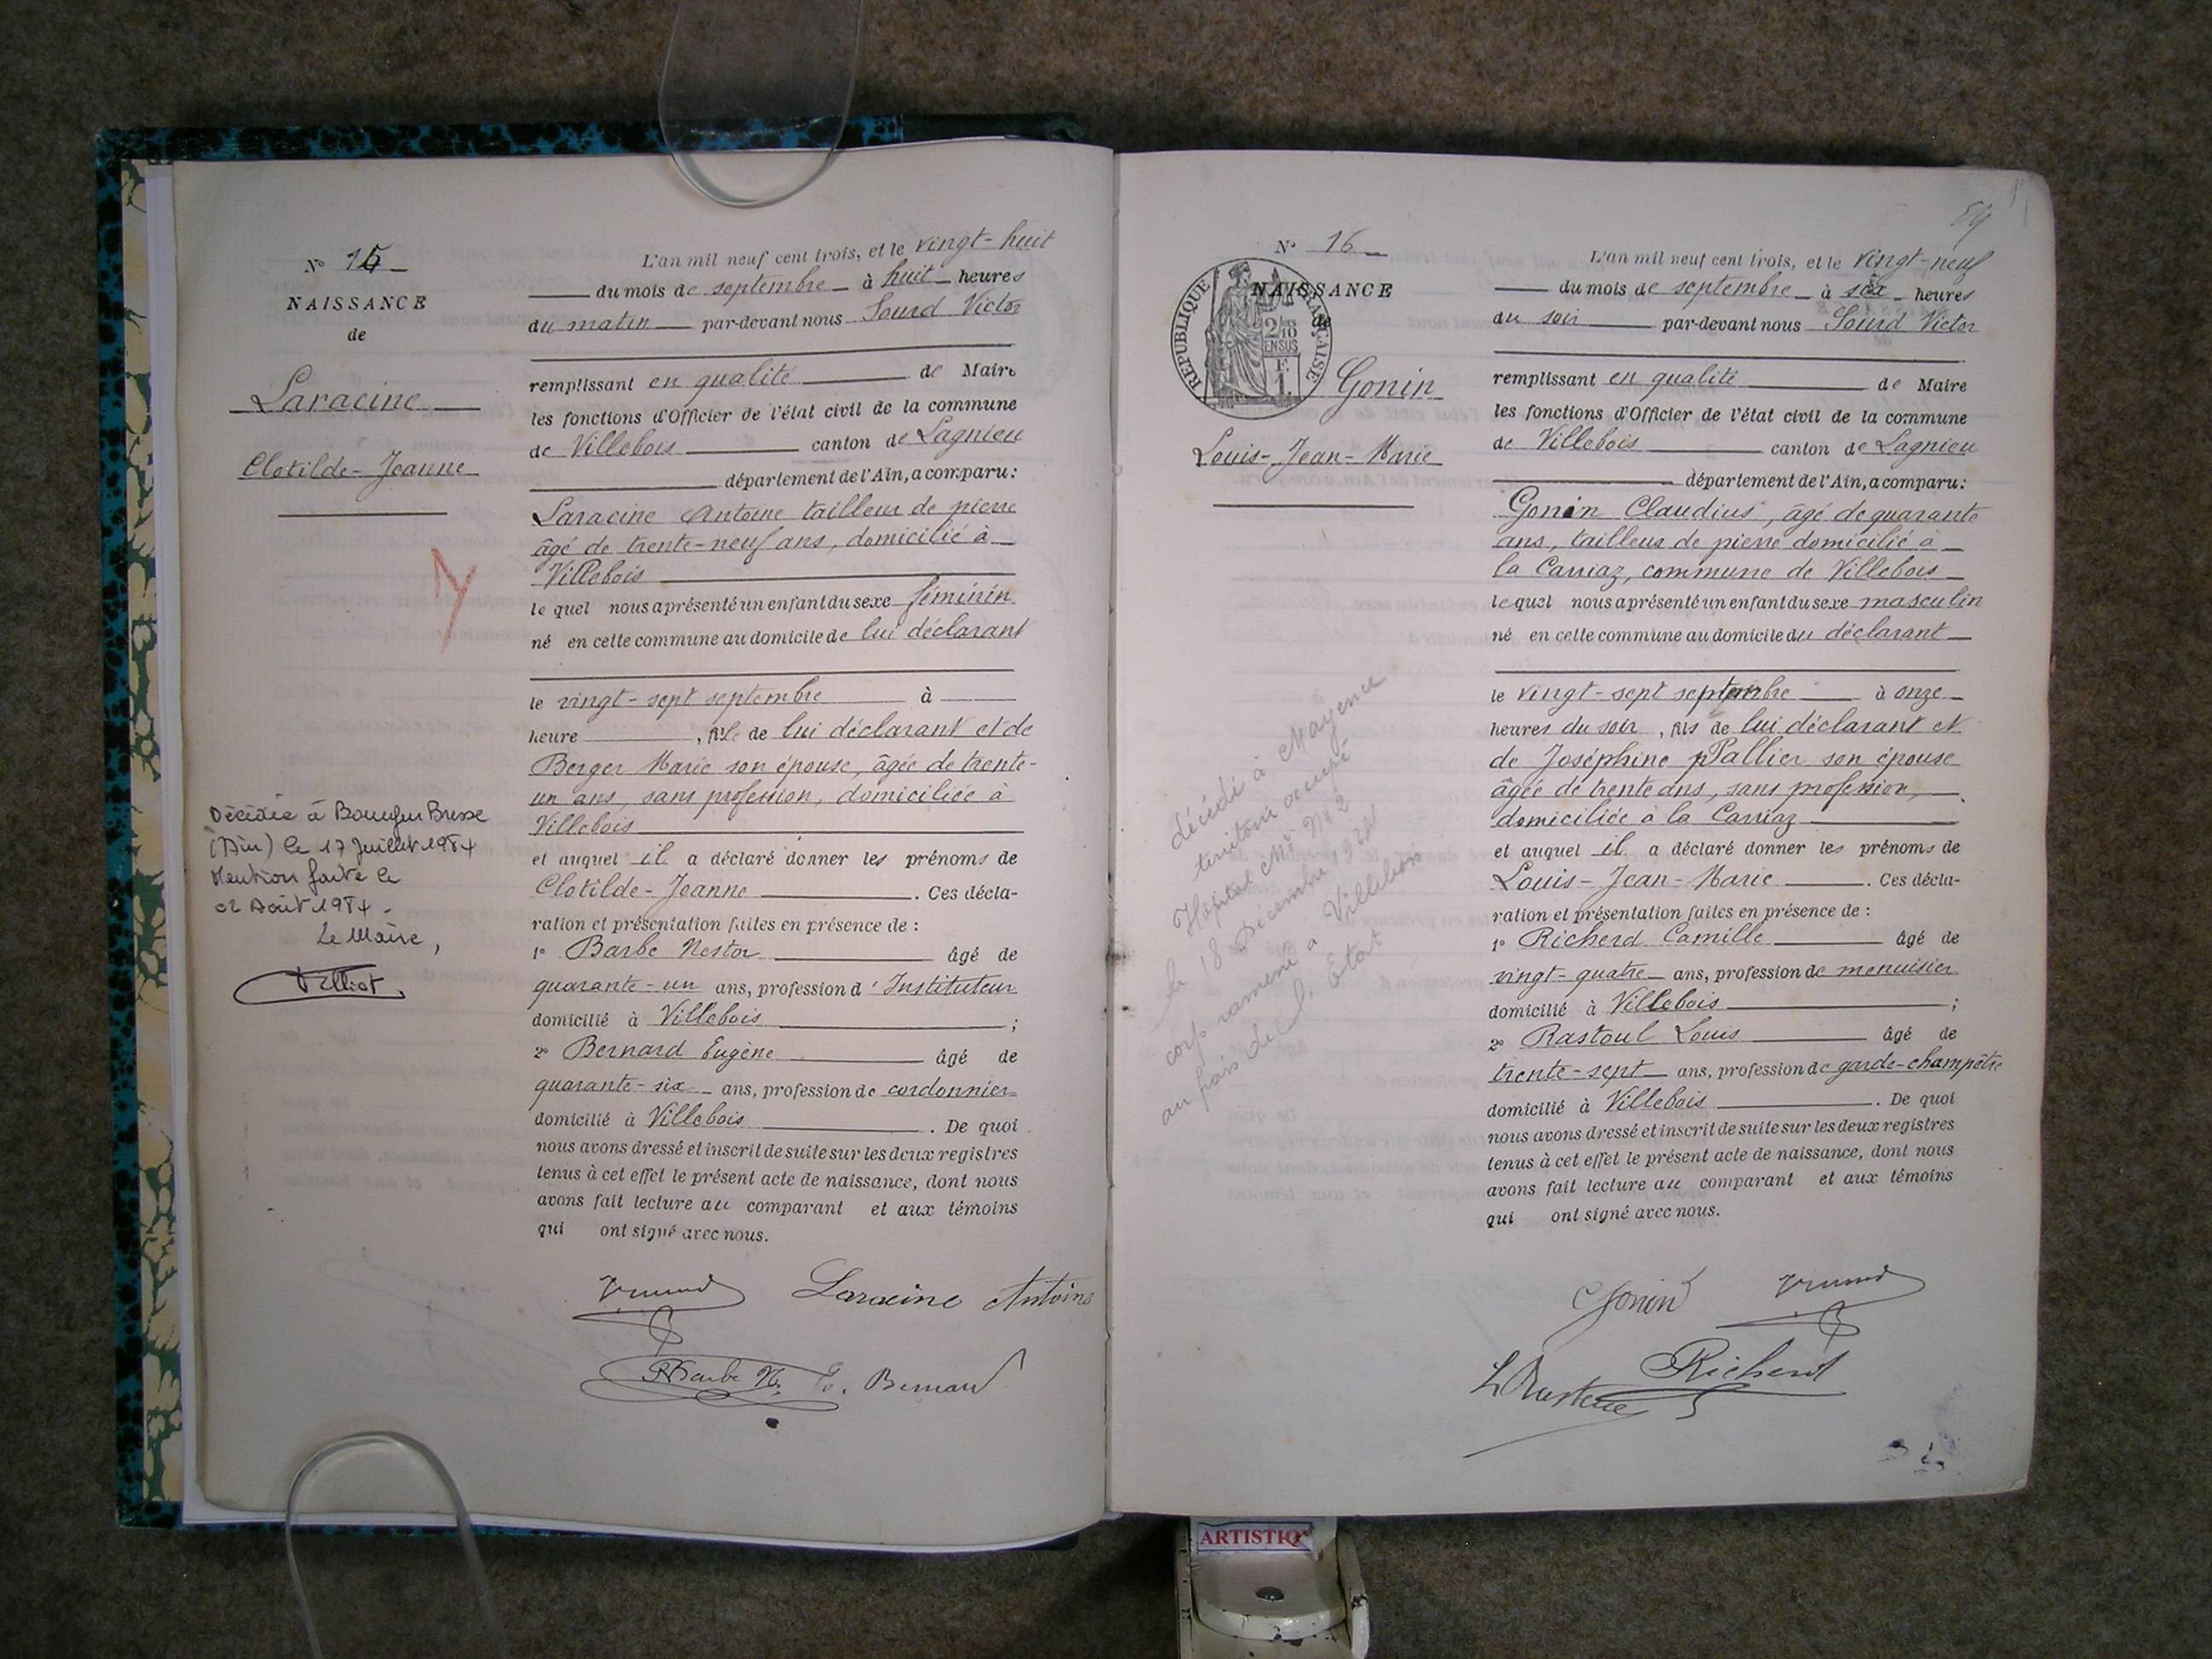 N° 15
NAISSANCE
de
Laracine
Clotilde-Jeanne
Décédée à Bourg en Bresse
(Ain) le 17 Juillet 1984
Mention faite le
02 Août 1984.
Le Maire,
L'an mil neuf cent trois, et le vingt-huit
du mois de septembre à huit heures
du matin par-devant nous Sourd Victor
remplissant en qualité de Maire
les fonctions d'Officier de l'état civil de la commune
de Villebois canton de Lagnieu
département de l'Ain, a comparu:
Laracine Antoine tailleur de pierre
âgé de trente-neuf ans, domicilié à
Villebois
le quel nous a présenté un enfant du sexe féminin
né en cette commune au domicile de lui déclarant
le vingt-sept septembre à
heure , fille de lui déclarant et de
Berger Marie son épouse, âgée de trente-
un ans, sans profession, domiciliée à
Villebois
et auquel il a déclaré donner les prénoms de
Clotilde-Jeanne . Ces décla-
ration et présentation faites en présence de :
1° Barbe Nestor âgé de
quarante-un ans, profession d'Instituteur
domicilié à Villebois ;
2° Bernard Eugène âgé de
quarante-six ans, profession de cordonnier
domicilié à Villebois . De quoi
nous avons dressé et inscrit de suite sur les deux registres
tenus à cet effet le présent acte de naissance, dont nous
avons fait lecture au comparant et aux témoins
qui ont signé avec nous.
Laracine Antoine
Barbe N. E. Bernard
54
N° 16
NAISSANCE
de
RÉPUBLIQUE FRANÇAISE
2/10 EN SUS
Gonin
Louis-Jean-Marie
décédé à Mayence
territoire occupé
Hôpital Mre N° 2
le 18 Décembre 1924
corps ramené à Villebois
au frais de l'Etat
L'an mil neuf cent trois, et le vingt-neuf
du mois de septembre à six heures
du soir par-devant nous Sourd Victor
remplissant en qualité de Maire
les fonctions d'Officier de l'état civil de la commune
de Villebois canton de Lagnieu
département de l'Ain, a comparu:
Gonin Claudius, âgé de quarante
ans, tailleur de pierre domicilié à
la Carriaz, commune de Villebois
le quel nous a présenté un enfant du sexe masculin
né en cette commune au domicile du déclarant
le vingt-sept septembre à onze
heures du soir, fils de lui déclarant et
de Joséphine Pallier son épouse
âgée de trente ans, sans profession,
domiciliée à la Carriaz
et auquel il a déclaré donner les prénoms de
Louis-Jean-Marie . Ces décla-
ration et présentation faites en présence de :
1° Richerd Camille âgé de
vingt-quatre ans, profession de menuisier
domicilié à Villebois ;
2° Rastoul Louis âgé de
trente-sept ans, profession de garde-champêtre
domicilié à Villebois . De quoi
nous avons dressé et inscrit de suite sur les deux registres
tenus à cet effet le présent acte de naissance, dont nous
avons fait lecture au comparant et aux témoins
qui ont signé avec nous.
Gonin
Richerd
ARTISTIQ